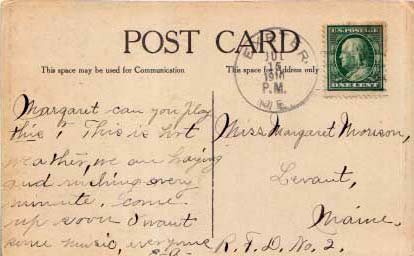 POST CARD
This space may be used for Communication
This space for Address only
JUL
15
1910
P.M.
ME.
U.S. POSTAGE
ONE CENT
Margaret can you play
this? This is hot
weather, we are haying
and rushing every
minute. Come
up soon I want
some music, everyone
Miss Margaret Morison,
Levant,
Maine.
R.F.D. No. 2.